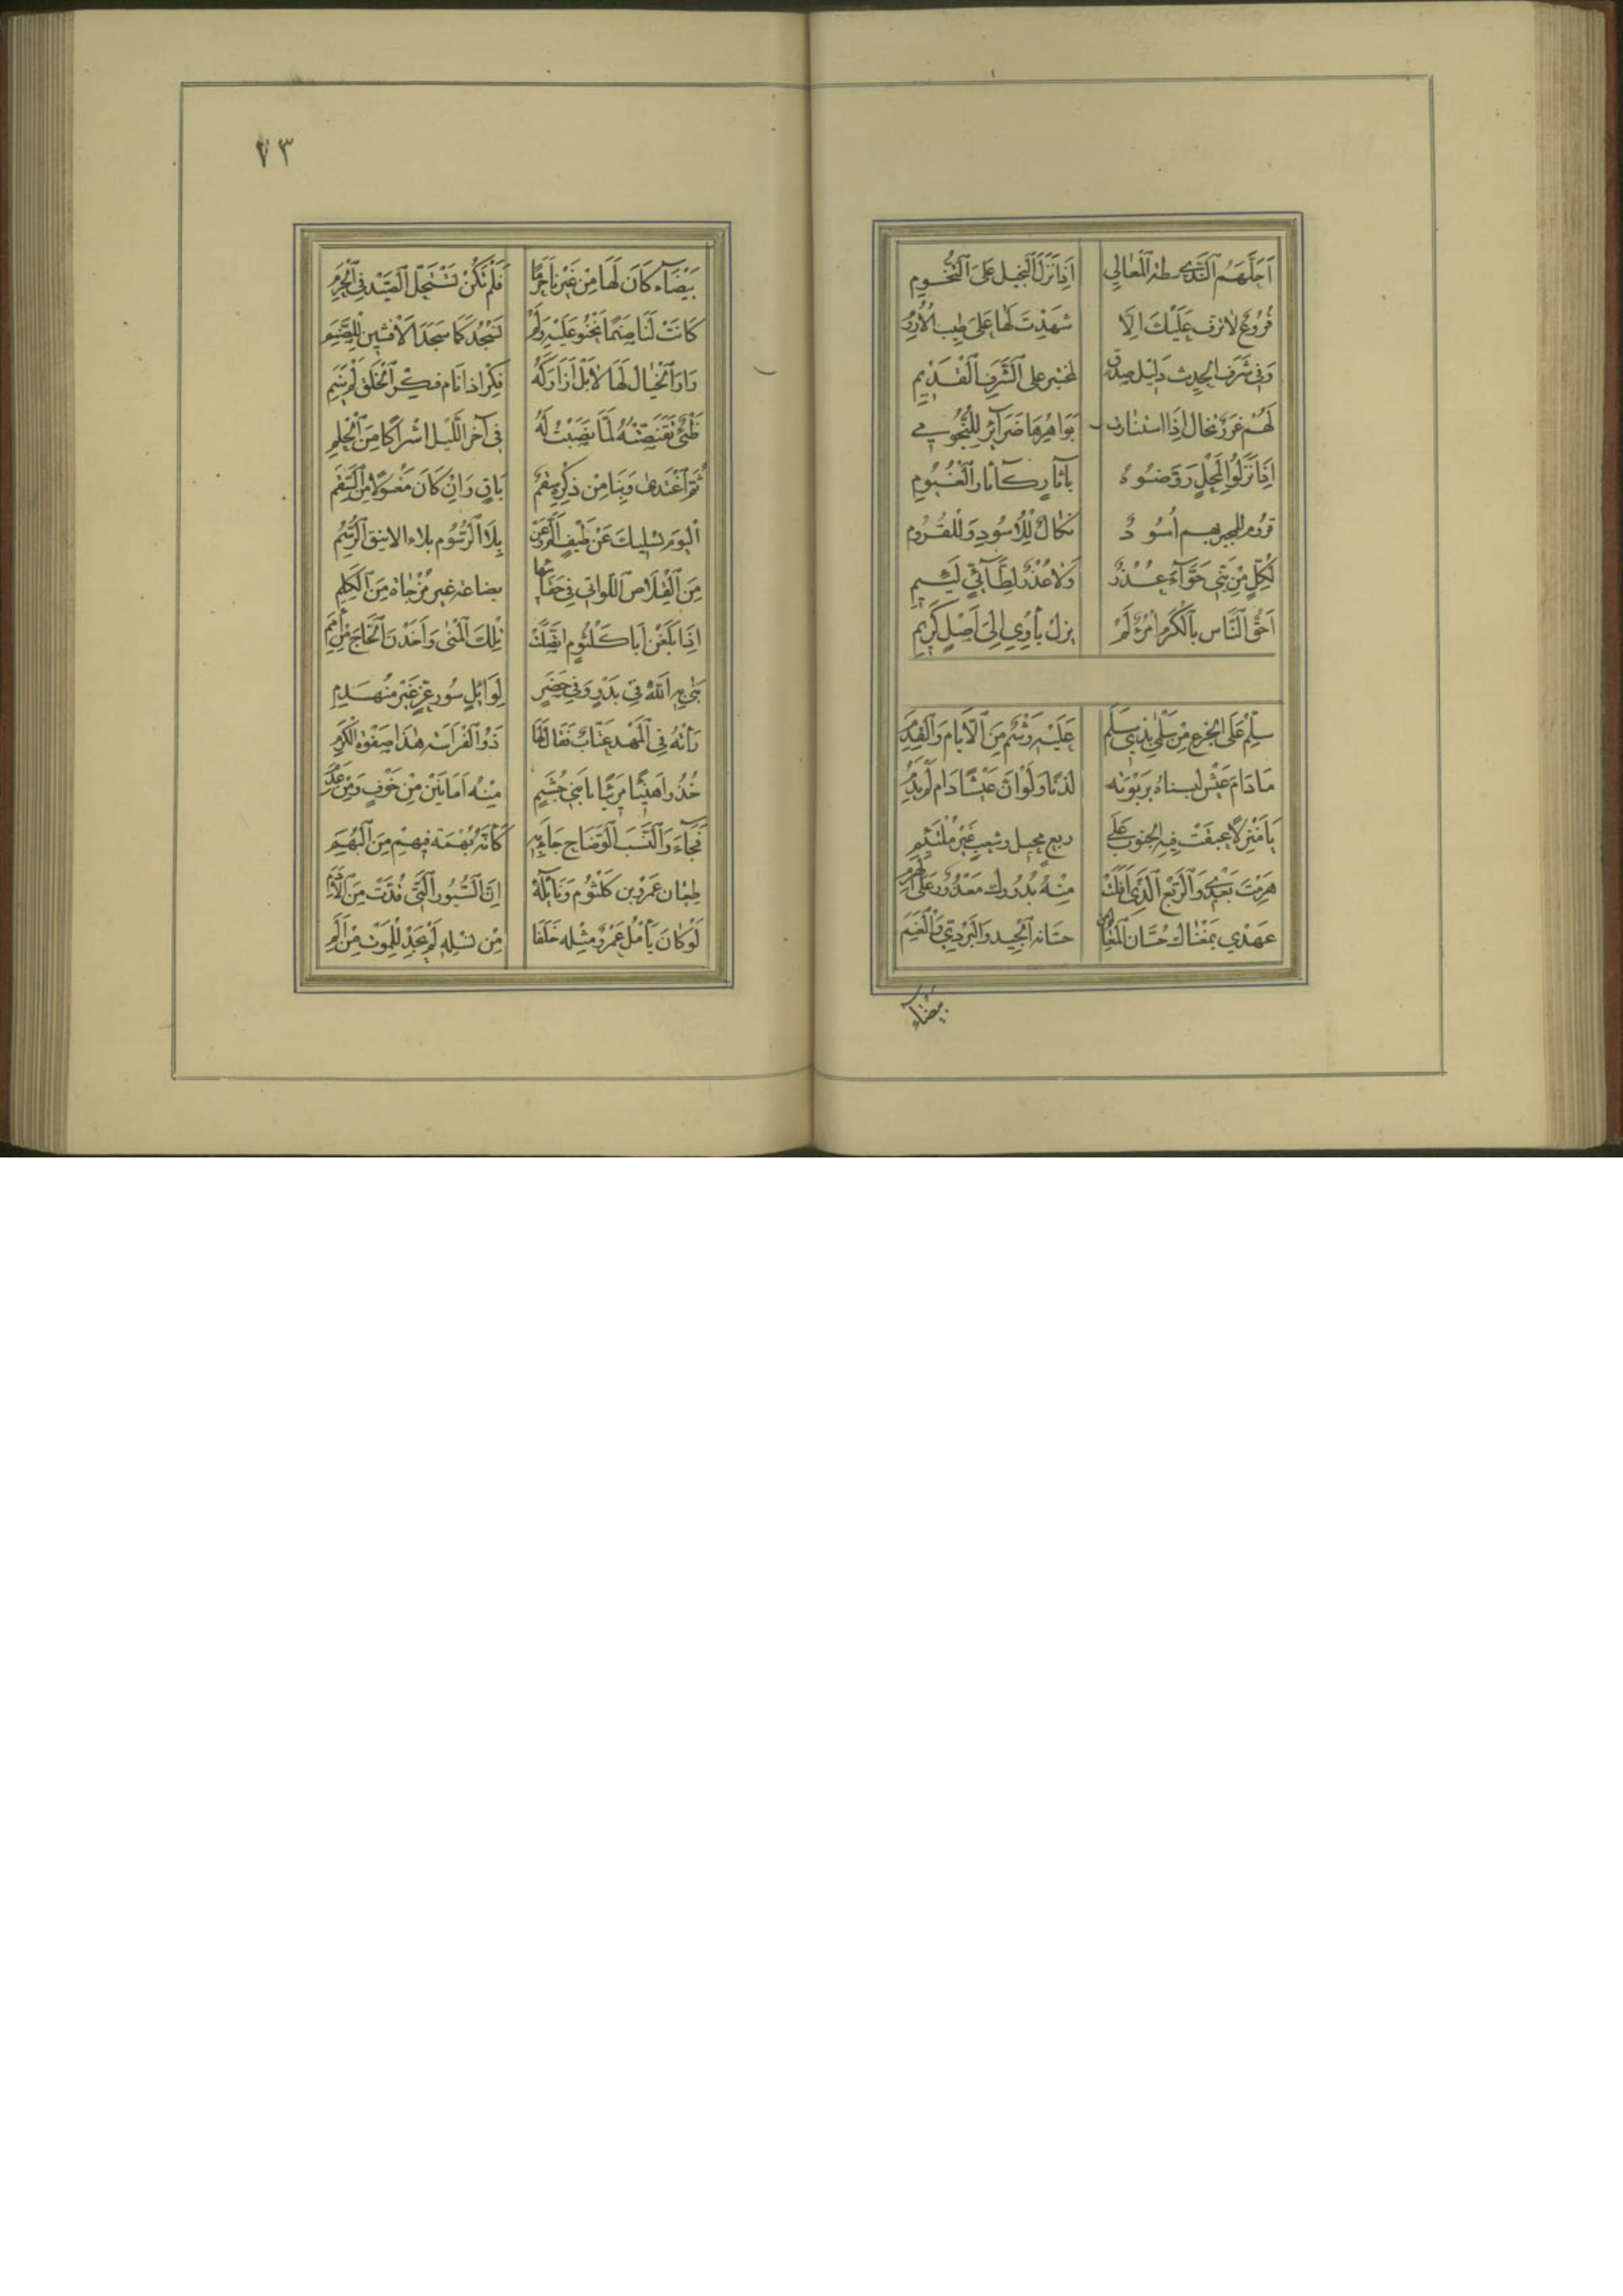 اَحَلَّهُمُ ٱلنَّدَى سطة ٱلْمَعَالِي اِذَا نَزَلَ ٱلْبَخِيل عَلَى ٱلتُّخُومِ
فُرُوعٌ لا ترف عَلَيْكَ اِلَّا شَهِدْتَ لَهَا عَلَى طِيبِ الاُرُومِ
وَفِي شَرَفِ الحَدِيث دَلِيل صِدْقٍ لمختبر على ٱلشَّرَفِ ٱلْقَدِيمِ
لَهُمْ غُرَرٌ تخال اِذَا استنارت بَوَاهِرُهَا ضَرَآئِر لِلنُّجُومِ
اِذَا نَزَلُوا لِمَحْلٍ رَوَّضُوهُ بآثار كَآثَار ٱلْغُيُومِ
قروم للمجير بهم اُسُودٌ نَكَالٌ لِلْاُسُودِ وَلِلْقُرُومِ
لِكُلٍّ مِنْ بَنِي حَوَّآءَ عُذْرٌ وَلَا عُذْرٌ لِطَآئِيٍّ لَئِيمِ
اَحَقُّ ٱلنَّاس بِٱلْكَرَمِ امْرُؤٌ لَمْ يزل يأوِي اِلَى اَصْلٍ كَرِيمِ
سَلِّمْ عَلَى الجِزع مِنْ سَلْمَى بِذِي سَلَمِ عَلَيْهِ وَشْمٌ مِنَ ٱلْاَيَّام وَٱلْقِدَمِ
مَا دَامَ عَيْشٌ لبسناه بِرَبْوَتِه لدنًا وَلَوْ اَنَّ عَيْشًا دَام لَمْ يَدُمِ
يَا مَنْزِلًا عبقت فِيهِ الجنوب عَلَى ربع محيل وشعبٍ غَيْرِ مُلْتَئِمِ
هَرِمْتَ بَعْدِي وَٱلرَّبْع ٱلَّذِي اَفَلَتْ مِنْهُ بُدُورك مَعْذُورٌ عَلَى الْهَرَمِ
عَهْدِي بِمَغْنَاك حُسَّان ٱلْمَعَالِمِ من حسانة ٱلْجِيد والبردي وَٱلْعَنَمِ
بيضآء
٧٣
بَيْضَآء كَانَ لَهَا مِنْ غَيْرِنَا حَرَمًا فَلَمْ نَكُنْ نَسْتَحِلّ ٱلصَّيْد فِي ٱلْحَرَمِ
كَانَتْ لَنَا صَنَمًا نَحْنُو عَلَيْهِ وَلَمْ نَسْجُدْ كَمَا سَجَدَ الْافشين لِلصَّنَمِ
زَارَ ٱلْخَيَال لَهَا لَا بَلْ اَزَارَكَهُ فِكْر اذا نَام فكر ٱلْخَلْقِ لَمْ يَنَمِ
ظَبْيٌ تَقَنَّصْتُهُ لَمَّا نَصَبْتُ لَهُ فِي آخر ٱللَّيْل اَشْرَاكًا مِنَ ٱلْحُلُمِ
ثُمَّ ٱغْتَدَى وَبِنَا مِنْ ذِكْرِهِ سَقَمٌ بَاقٍ وَاِنْ كَانَ مَعْسُولًا مِنَ ٱلسَّقَمِ
ٱلْيَوْمَ يُسْلِيكَ عَنْ طَيْفٍ اَلَمَّ وَعَنْ بِلَى ٱلرُّسُوم بلاء الاينق ٱلرُّسُمِ
مِنَ ٱلْقِلَاصِ ٱللَّوَاتِي فِي حَقَائِبِهَا بضاعة غير مُزْجَاة مِنَ ٱلْكَلِمِ
اِذَا بَلَغْنَ اَبَا كَلْثُوم اتَّصَلَتْ تِلْكَ ٱلْمُنَى وَاَخَذْنَ ٱلْحَاجَ مِنْ اَمَمِ
بَنَى بِهِ ٱللّٰهُ فِي بَدْوٍ وَفِي حَضَرٍ لِوَائِلٍ سُور عِزٍّ غَيْرَ مُنْهَدِمِ
رَأَتْهُ فِي ٱلْمَهْد عَتَّابٌ فَقَال لَهَا ذَوُو ٱلْفَرَاسَة هٰذَا صَفْوَةُ ٱلْكَرَمِ
خُذُوا هَنِيئًا مَرِيئًا يَا بَنِي جُشَمٍ مِنْهُ اَمَانَيْنِ مِنْ خَوْفٍ وَمِنْ عَدَمِ
فَجَآءَ وَٱلنَّسَب ٱلْوَضَّاح جَاءَ بِهِ كَاَنَّهُ بُهْمَة فِيهِمْ مِنَ ٱلْبُهَمِ
طِعَان عَمْرو بن كَلْثُوم وَنَائِلهُ اِنَّ ٱلسُّيُور ٱلَّتِي قُدَّتْ مِنَ ٱلْاَدَمِ
لَوْ كَانَ يَأْمُل عَمْرٌو مِثْله خَلَفًا مِنْ نَسْلِهِ لَمْ يَجِدْ لِلْمَوْت مِنْ اَلَمِ